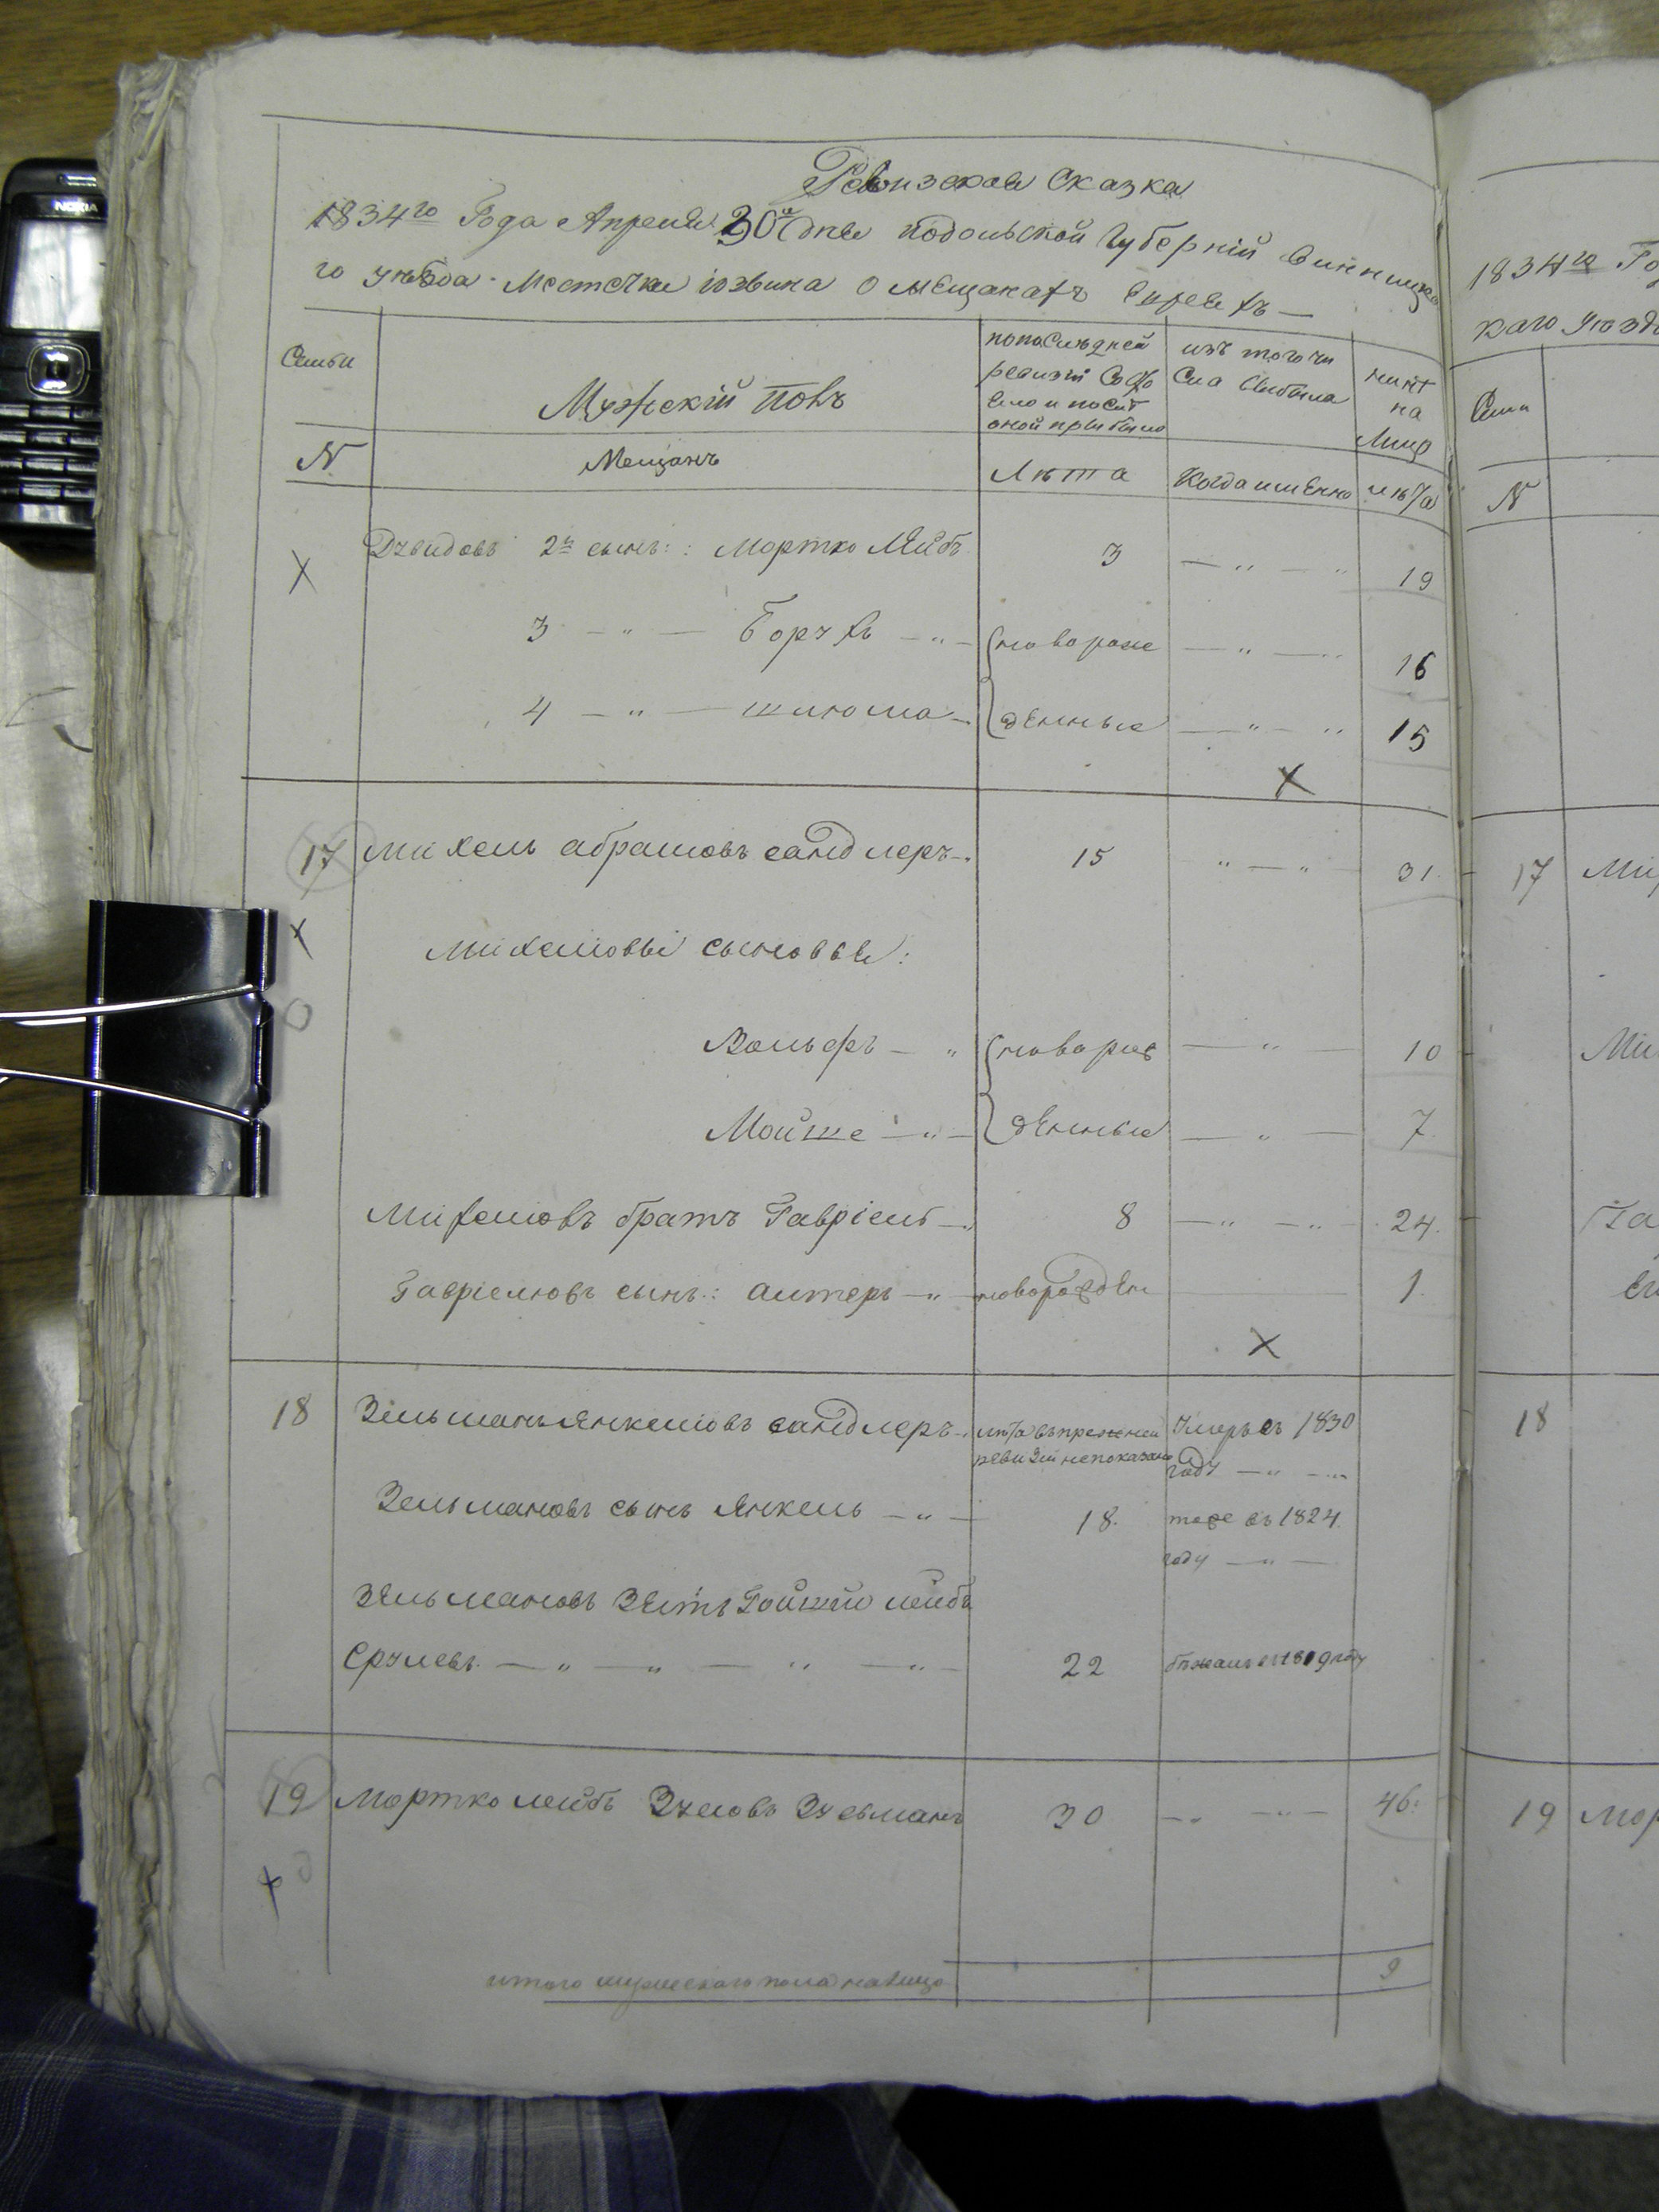 NOKIA
Ревизская Сказка
1834го Года Апреля 30го Дня Подольской Губерній Винницка
го уѣзда Местечка юзвина О мещанахъ Евреяхъ —
Семьи
Мужескій Полъ
по последней
ревизіи Состо
яло и после
оной прибыло
изъ того чи
сла Выбыло
ныне
на
Лицо
N
Мещанъ
Лѣта
Когда именно
лѣта
Дувидовъ 2й сынъ: Мортко Лейбъ
3
— „ — „
19
3 — „ — Борухъ — „ —
новорож
— „ —
16
4 — „ — шлюма —
денные
— „ — „
15
X
17
Михель абрамовъ сандлеръ
15
„ — „
31
X
Михелювы сыновья:
Вольфъ — „
новорож
— „ —
10
Мойше — „ —
денные
— „ —
7
Михелювъ братъ Гавріель —
8
— „ — „ —
24.
Гавріелювъ сынъ: алтеръ — „ —
новорожден
1
X
18
Зельманъ Янкелювъ сандлеръ
лѣта въ прежней
ревизіи не показано
Умеръ въ 1830
году — „ —
Зельмановъ сынъ Янкель — „ —
18.
тоже въ 1824
году — „ —
Зельмановъ Зять лейбъ
Срулевъ — „ — „ — „ — „ —
22
бѣжалъ въ 1819 году
19
Мортко лейбъ
30
— „ — „ —
46
X
итого мужескаго пола налицо
9
1834го Го
каго Уѣзд
N
17
Ми
Ми
Га
18
19
Мор